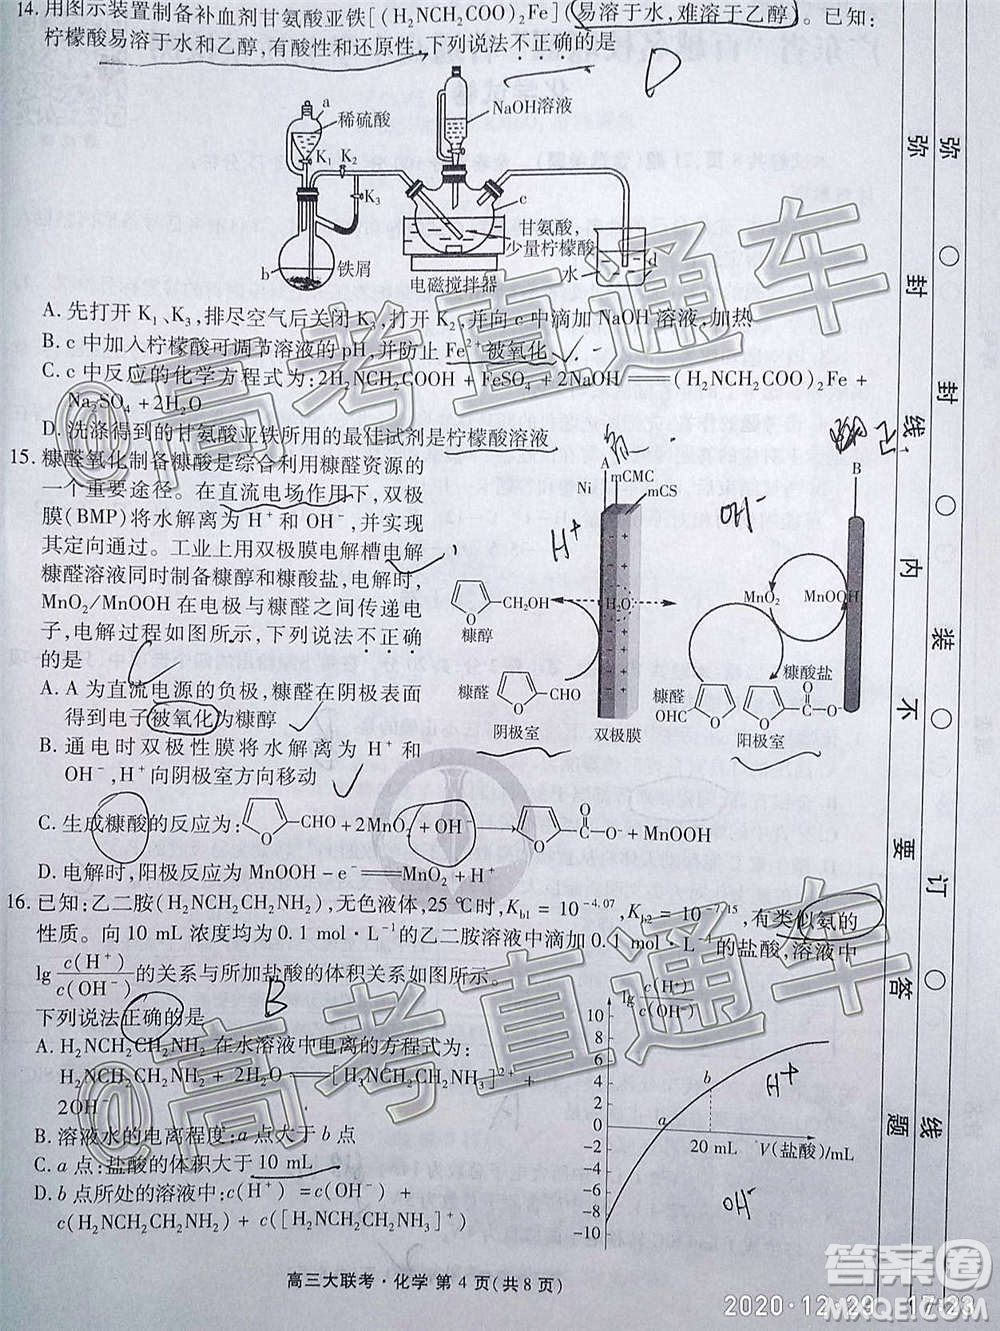 14. 用图示装置制备补血剂甘氨酸亚铁[(H₂NCH₂COO)₂Fe](易溶于水,难溶于乙醇)。已知:
柠檬酸易溶于水和乙醇,有酸性和还原性,下列说法不正确的是
D
a
稀硫酸
NaOH溶液
K₁
K₂
K₃
c
甘氨酸
少量柠檬酸
b
铁屑
电磁搅拌器
水
d
A. 先打开 K₁、K₃,排尽空气后关闭 K₃,打开 K₂,并向 c 中滴加 NaOH 溶液,加热
B. c 中加入柠檬酸可调节溶液的 pH,并防止 Fe²⁺被氧化
C. c 中反应的化学方程式为:2H₂NCH₂COOH+FeSO₄+2NaOH══(H₂NCH₂COO)₂Fe+
Na₂SO₄+2H₂O
D. 洗涤得到的甘氨酸亚铁所用的最佳试剂是柠檬酸溶液
15. 糠醛氧化制备糠酸是综合利用糠醛资源的
一个重要途径。在直流电场作用下,双极
膜(BMP)将水解离为 H⁺和 OH⁻,并实现
其定向通过。工业上用双极膜电解槽电解
糠醛溶液同时制备糠醇和糠酸盐,电解时,
MnO₂/MnOOH 在电极与糠醛之间传递电
子,电解过程如图所示,下列说法不正确
的是
A
Ni
mCMC
mCS
B
H⁺
OH⁻
CH₂OH
糠醇
H₂O
MnO₂
MnOOH
糠醛
CHO
糠醛
OHC
糠酸盐
C
O
O⁻
阴极室
双极膜
阳极室
A. A 为直流电源的负极,糠醛在阴极表面
得到电子被氧化为糠醇
B. 通电时双极性膜将水解离为 H⁺和
OH⁻,H⁺向阴极室方向移动
C. 生成糠酸的反应为: CHO+2MnO₂+OH⁻→ C O O⁻+MnOOH
D. 电解时,阳极反应为 MnOOH−e⁻══MnO₂+H⁺
16. 已知:乙二胺(H₂NCH₂CH₂NH₂),无色液体,25 ℃时,K_b1=10⁻⁴·⁰⁷,K_b2=10⁻⁷·¹⁵,有类似氨的
性质。向 10 mL 浓度均为 0.1 mol·L⁻¹的乙二胺溶液中滴加 0.1 mol·L⁻¹的盐酸,溶液中
lg c(H⁺)/c(OH⁻) 的关系与所加盐酸的体积关系如图所示。
下列说法正确的是
B
A. H₂NCH₂CH₂NH₂ 在水溶液中电离的方程式为:
H₂NCH₂CH₂NH₂+2H₂O══[H₃NCH₂CH₂NH₃]²⁺+
2OH⁻
B. 溶液水的电离程度:a 点大于 b 点
C. a 点:盐酸的体积大于 10 mL
D. b 点所处的溶液中:c(H⁺)=c(OH⁻)+
c(H₂NCH₂CH₂NH₂)+c([H₂NCH₂CH₂NH₃]⁺)
lg c(H⁺)/c(OH⁻)
10
8
6
4
2
0
−2
−4
−6
−8
−10
a
b
20 mL
V(盐酸)/mL
H⁺
OH⁻
高三大联考·化学 第 4 页(共 8 页)
弥 封 线 内 不 要 答 题
弥 封 装 订 线
@高考直通车
@高考直通车
答案圈
MXQE.COM
2020·12·29 17:23